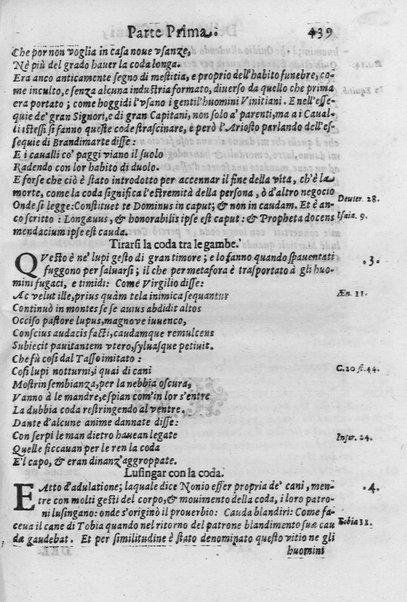 Parte Prima. 439
Che por non voglia in casa noue vsanze,
Nè più del grado hauer la coda longa.
Era anco anticamente segno di mestitia, e proprio dell'habito funebre, co-
me inculto, e senza alcuna industria formato, diuerso da quello che prima
era portato; come hoggidì l'vsano i gentil'huomini Vinitiani. E nell'esse-
quie de' gran Signori, e di gran Capitani, non solo a' parenti, ma a i Caual-
li istessi si fanno queste code strascinare, e però l'Ariosto parlando dell'es-
sequie di Brandimarte disse:
E i caualli co' paggi viano il suolo
Radendo con lor habito di duolo.
E forse che ciò è stato introdotto per accennar il fine della vita, ch'è la
morte, come la coda significa l'estremità della persona, ò d'altro negocio
Onde si legge: Constituet te Dominus in caput; & non in caudam. Et è an- Deuter. 28.
co scritto: Longæuus, & honorabilis ipse est caput: & Propheta docens Isaia. 9.
mendacium ipse est cauda.
Tirarsi la coda tra le gambe.
QVesto è ne' lupi gesto di gran timore; e lo fanno quando spauentati .3.
fuggono per saluarsi; il che per metafora è trasportato à gli huo-
mini fugaci, e timidi: Come Virgilio disse:
Ac velut ille, prius quàm tela inimica sequantur Æn. 11.
Continuò in montes se se auius abdidit altos
Occiso pastore lupus, magnove iuuenco,
Conscius audacis facti, caudamque remulcens
Subiecit pauitantem vtero, syluasque petiuit.
Che fù così dal Tasso imitato:
Così lupi notturni, i quai di cani C. 20 st. 44.
Mostrin sembianza, per la nebbia oscura,
Vanno à le mandre, espian com'in lor s'entre
La dubbia coda restringendo al ventre.
Dante d'alcune anime dannate disse:
Con serpi le man dietro hauean legate Infer. 24.
Quelle ficcauan per le ren la coda
E'l capo, & eran dinanz'aggroppate.
Lusingar con la coda.
EAtto d'adulatione; laquale dice Nonio esser propria de' cani, men- .4.
tre con molti gesti del corpo, & mouimento della coda, i loro patro-
ni lusingano: onde s'originò il prouerbio: Cauda blandiri: Come fa-
ceua il cane di Tobia quando nel ritorno del patrone blandimento suæ cau Tobia 11.
dæ gaudebat. Et per similitudine è stato domandato questo vitio ne gli
huomini